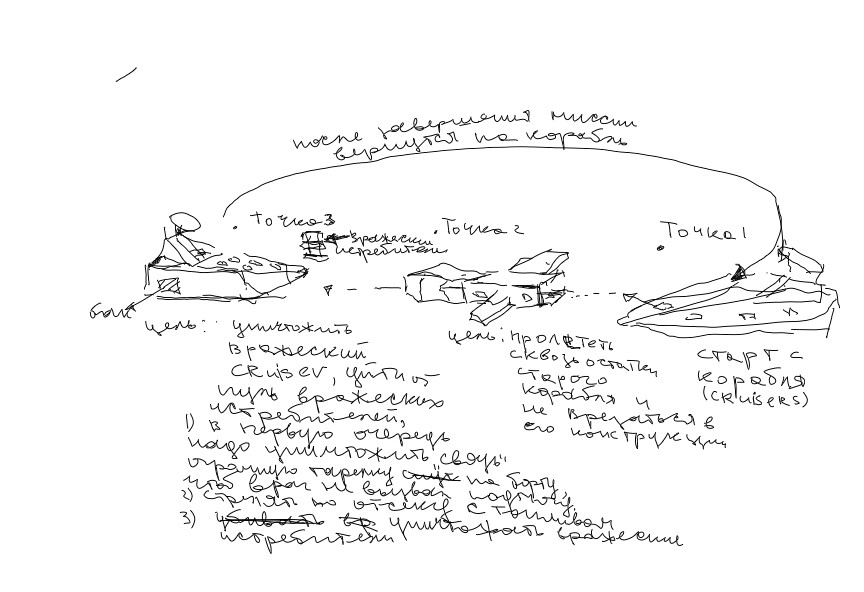 после завершения миссии
вернутся на корабль
Точка 3
Точка 2
Точка 1
вражеские
истребители
бак
цель: уничтожить
вражеский
cruiser, уйти от
пуль вражеских
истребителей,
1) в первую очередь
надо уничтожить "связь"
огромную тарелку на борту
что враг не вызвал подмогу
2) стрелят по отсеку с топливом
3) уничтожать вражеские
истребители
цель: пролететь
сквозь остатки
старого
корабля и
не врезаться в
его конструкции
старт с
корабля
(CRUISERS)